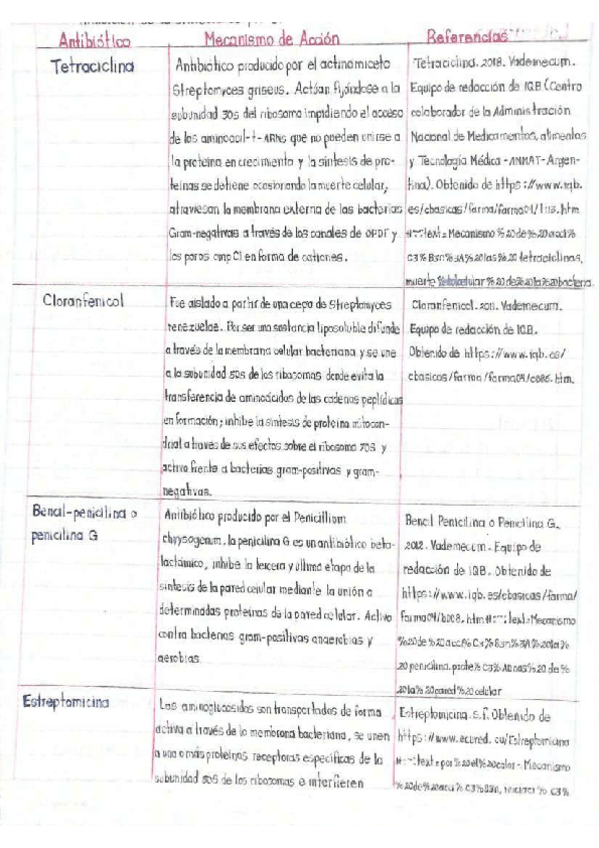 Antibiótico
Mecanismo de Acción
Referencias
Tetraciclina
Antibiótico producido por el actinomiceto
Streptomyces griseus. Actúan fijándose a la
subunidad 30s del ribosoma impidiendo el acceso
de los aminoacil-t-ARNs que no pueden unirse a
la proteína en crecimiento y la síntesis de pro-
teínas se detiene ocasionando la muerte celular,
atraviesan la membrana externa de las bacterias
Gram-negativas a través de los canales de OPDF y
los poros omp C1 en forma de cationes.
Tetraciclina. 2018. Vademecum.
Equipo de redacción de IQB (Centro
colaborador de la Administración
Nacional de Medicamentos, alimentos
y Tecnología Médica -ANMAT-Argen-
tina). Obtenido de https://www.iqb.
es/cbasicas/farma/farma04/
text=Mecanismo %20de%20acci%
C3%B3n%3A%20las%20tetraciclinas,
muerte %20celular %20de%20la%20bacteria.
Cloranfenicol
Fue aislado a partir de una cepa de Streptomyces
venezuelae. Por ser una sustancia liposoluble difunde
a través de la membrana celular bacteriana y se une
a la subunidad 50s de los ribosomas donde evita la
transferencia de aminoácidos de las cadenas peptídicas
en formación; inhibe la síntesis de proteína mitocon-
drial a través de sus efectos sobre el ribosoma 70S y
activo frente a bacterias gram-positivas y gram-
negativas.
Cloranfenicol. 2011. Vademecum.
Equipo de redacción de IQB.
Obtenido de https://www.iqb.es/
cbasicas/farma/farma04/c086.htm.
Bencil-penicilina o
penicilina G
Antibiótico producido por el Penicillium
chrysogenum, la penicilina G es un antibiótico beta-
lactámico, inhibe la tercera y última etapa de la
síntesis de la pared celular mediante la unión a
determinadas proteínas de la pared celular. Activo
contra bacterias gram-positivas anaerobias y
aerobias
Bencil Penicilina o Penicilina G.
2012. Vademecum. Equipo de
redacción de IQB. Obtenido de
https://www.iqb.es/cbasicas/farma/
farma04/b008.htm#:~:text=Mecanismo
%20de%20acci%C3%B3n%3A%20la%
20penicilina,prote%C3%ADnas%20de%
20la%20pared%20celular
Estreptomicina
Los aminoglucósidos son transportados de forma
activa a través de la membrana bacteriana, se unen
a una o más proteínas receptoras específicas de la
subunidad 30S de los ribosomas e interfieren
Estreptomicina. s.f. Obtenido de
https://www.ecured.cu/Estreptomicina
#:~:text=por%20el%20calor-Mecanismo
%20de%20acci%C3%B3n, %C3%